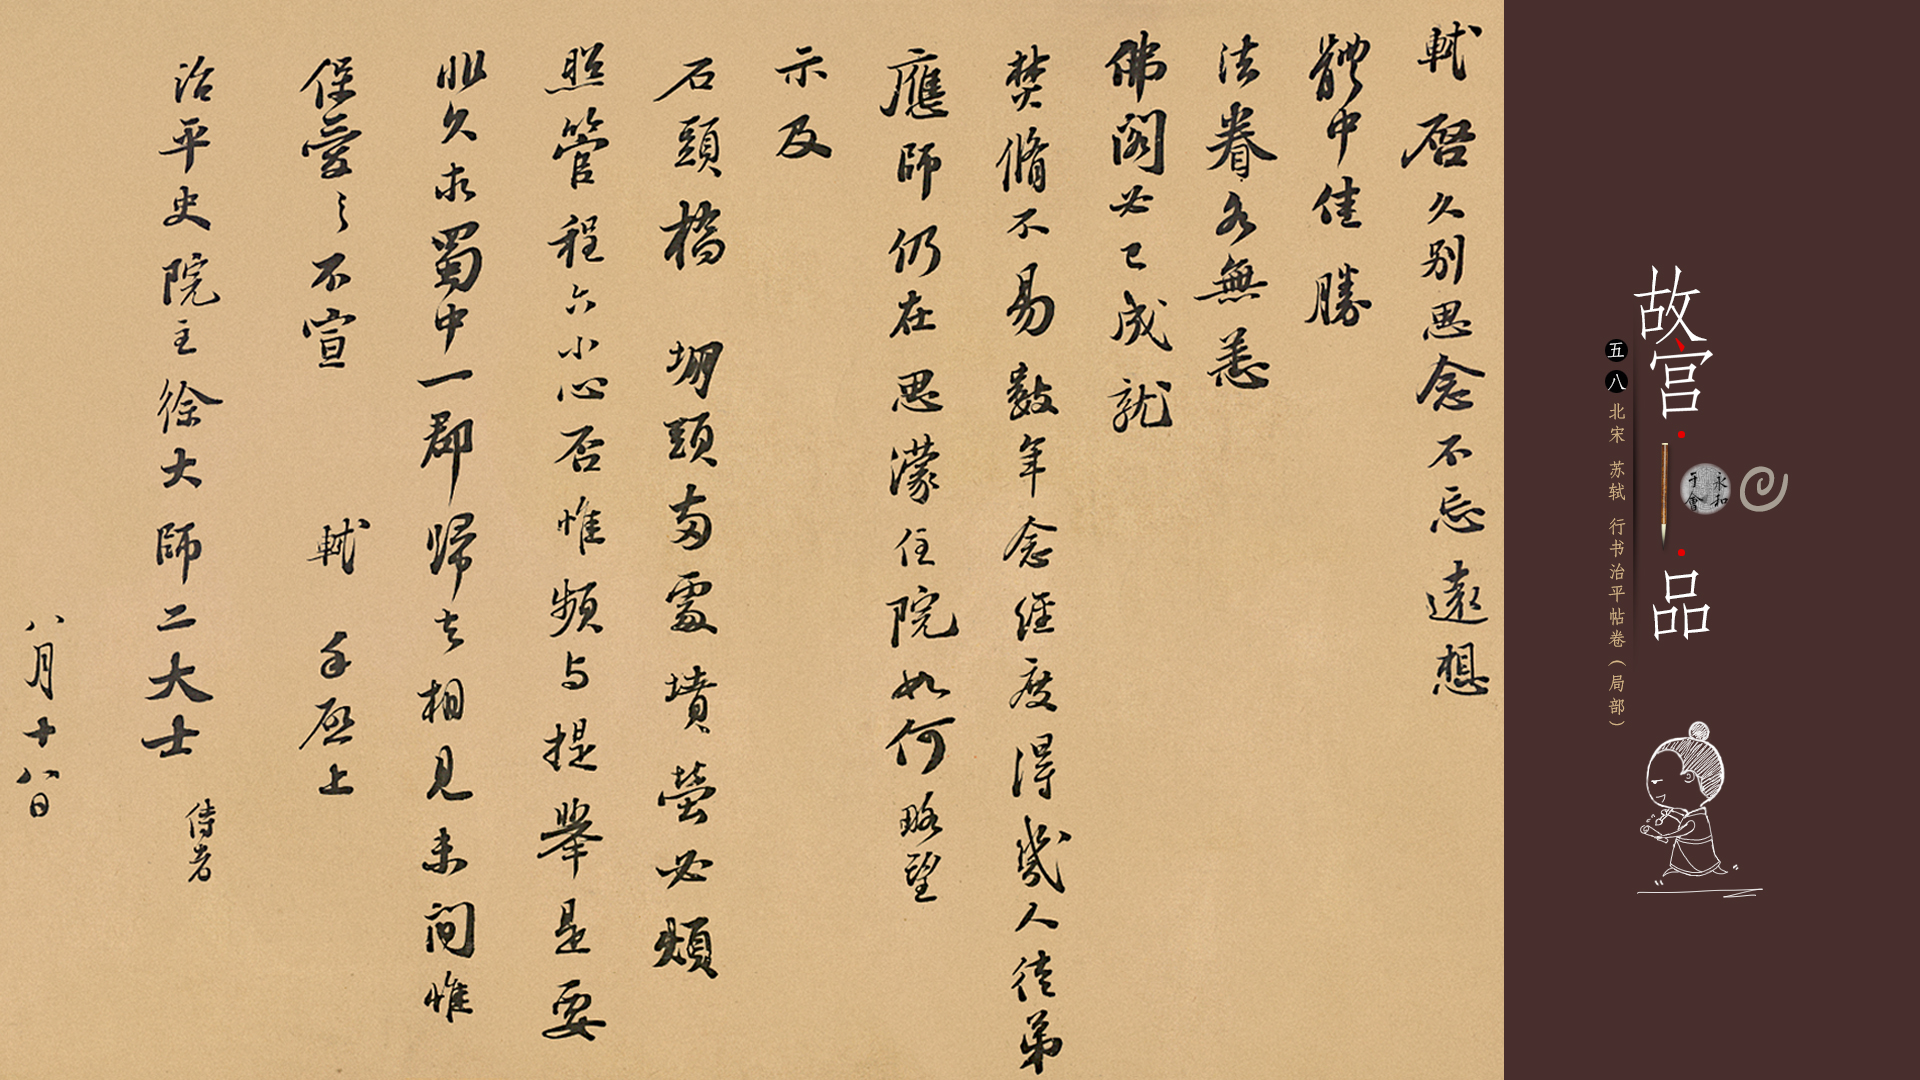 軾啓久别思念不忘遠想
體中佳勝
法眷各無恙
佛閣必已成就
焚脩不易數年念經度得幾人徒弟
應師仍在思濛住院如何略望
示及
石頭橋 堋頭兩處墳塋必煩
照管程六小心否惟頻与提舉是要
非久求蜀中一郡歸去相見未間惟
保愛之不宣 軾 手啓上
治平史院主徐大師二大士 侍者
八月十八日
故宫·品
永和
于會
五八 北宋 苏轼 行书治平帖卷(局部)